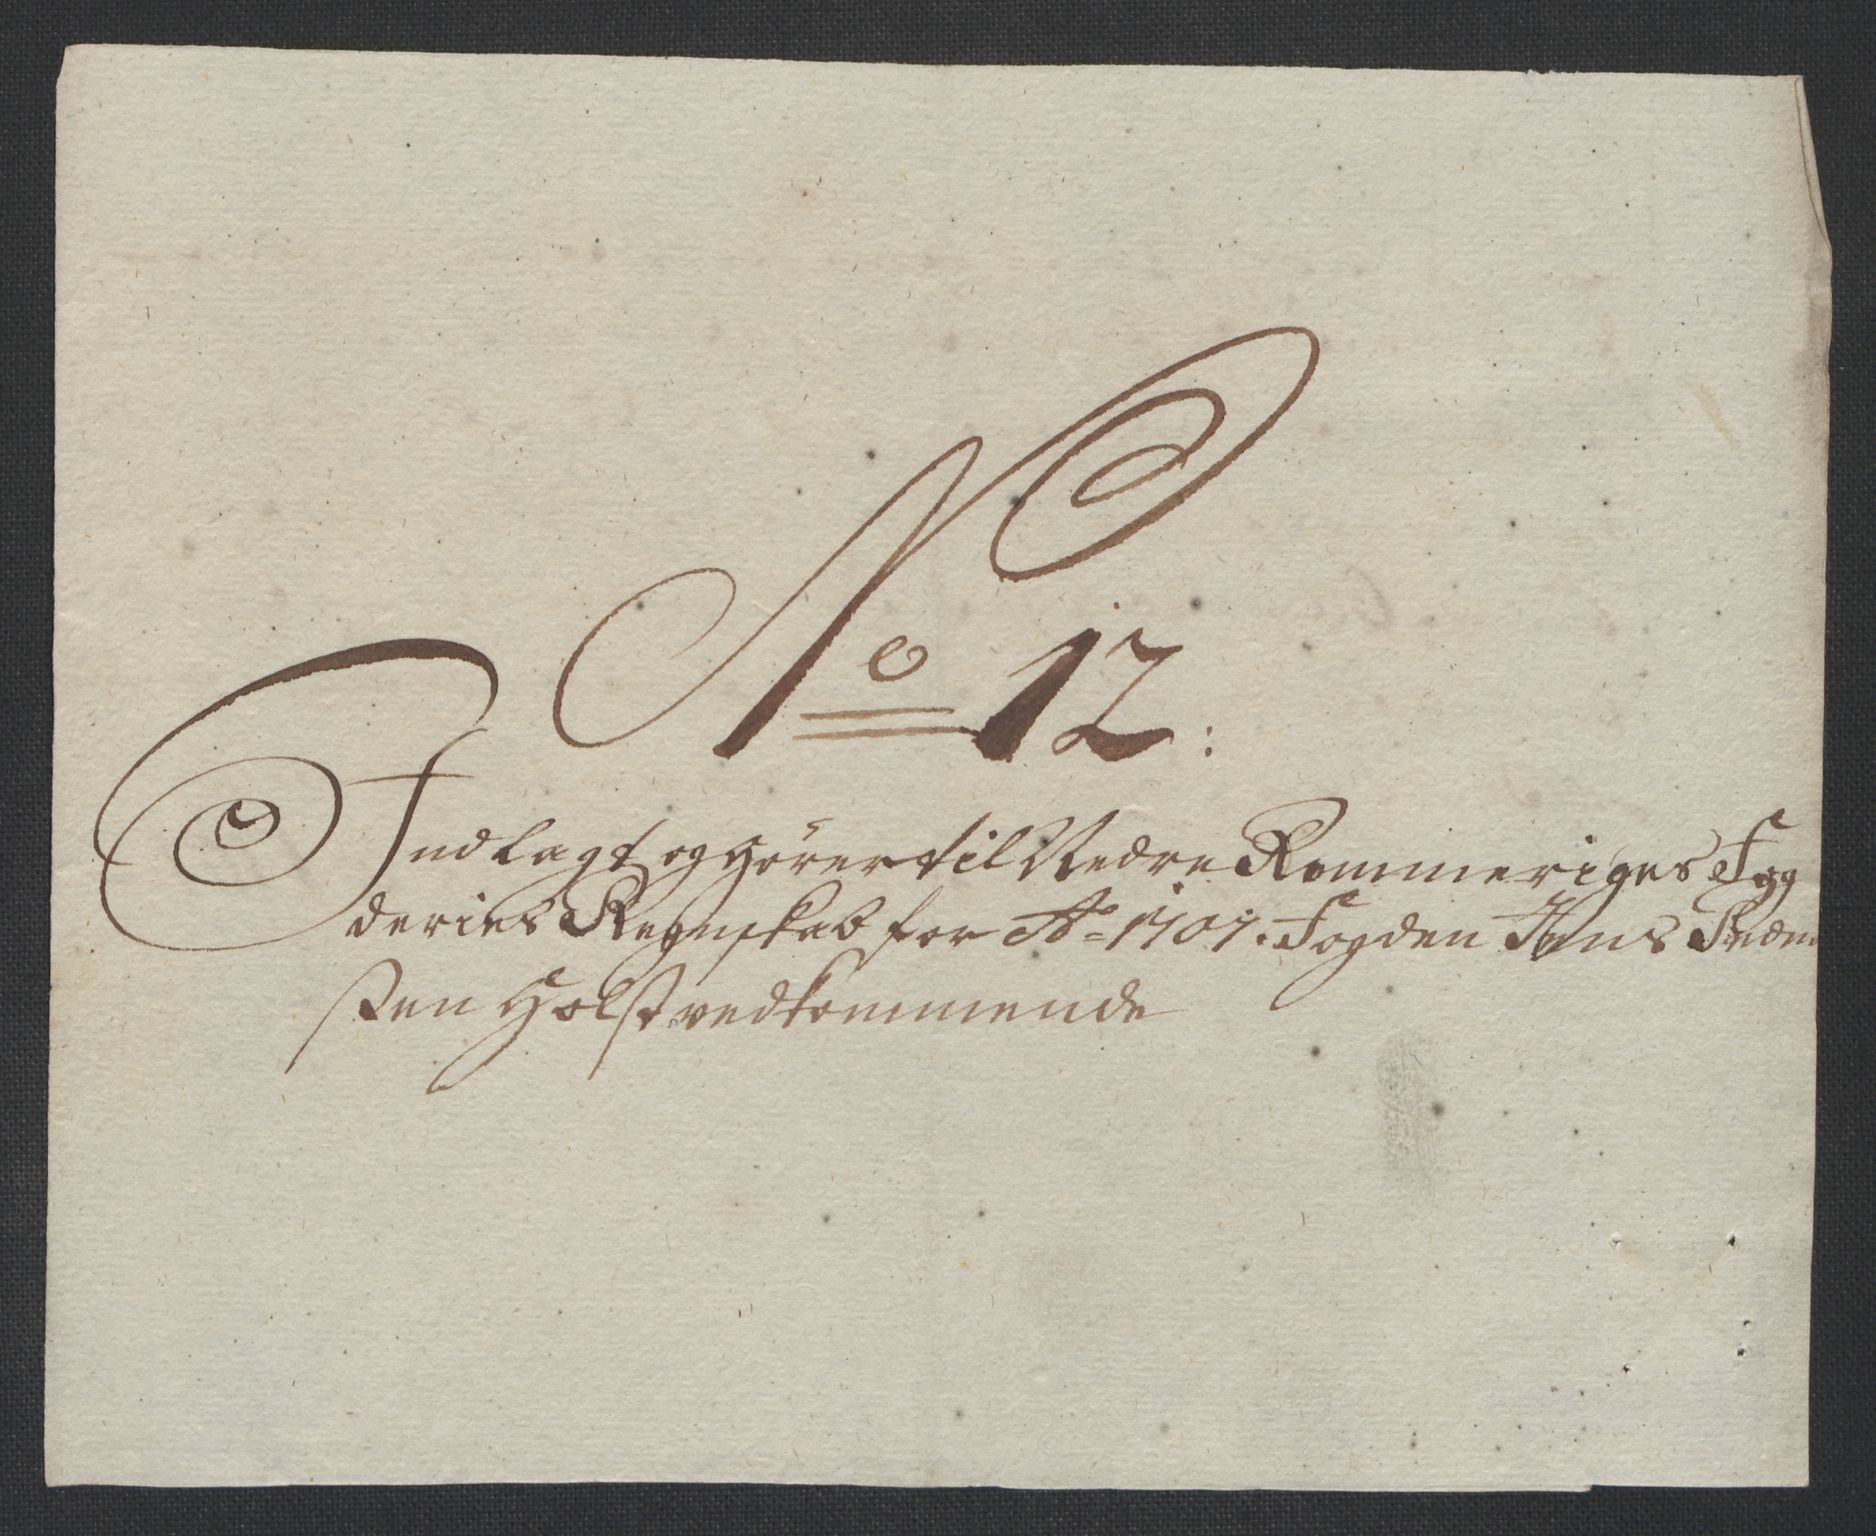 No 12:
Indlagt og hörer til Nedre Rommeriges Fog
deries Regnskab for Ao 1707. Fogden
sen Holst vedkommende